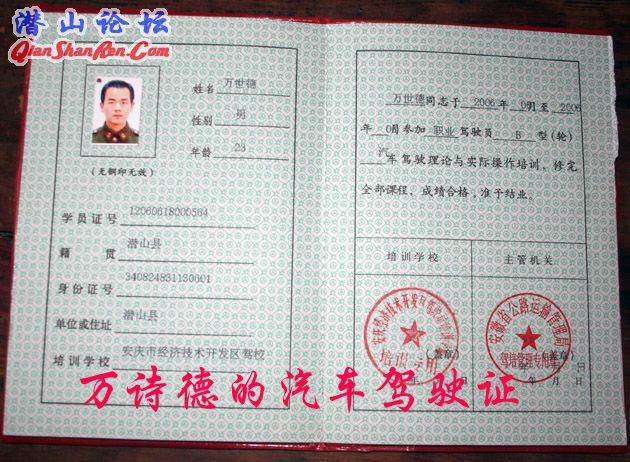 潜山论坛
QianShanRen.Com
姓名 万世德
性别 男
年龄 23
(无钢印无效)
学员证号 12060618000564
籍贯 潜山县
身份证号 340824831130601
单位或住址 潜山县
培训学校 安庆市经济技术开发区驾校
万世德同志于2006年0月至2006
年0月参加职业驾驶员B型(轮)
汽车驾驶理论与实际操作培训,修完
全部课程,成绩合格,准予结业。
培训学校 主管机关
培训专用
(盖章)
安徽省公路运输管理局
驾培管理专用章
(盖章)
年 月 日
万诗德的汽车驾驶证